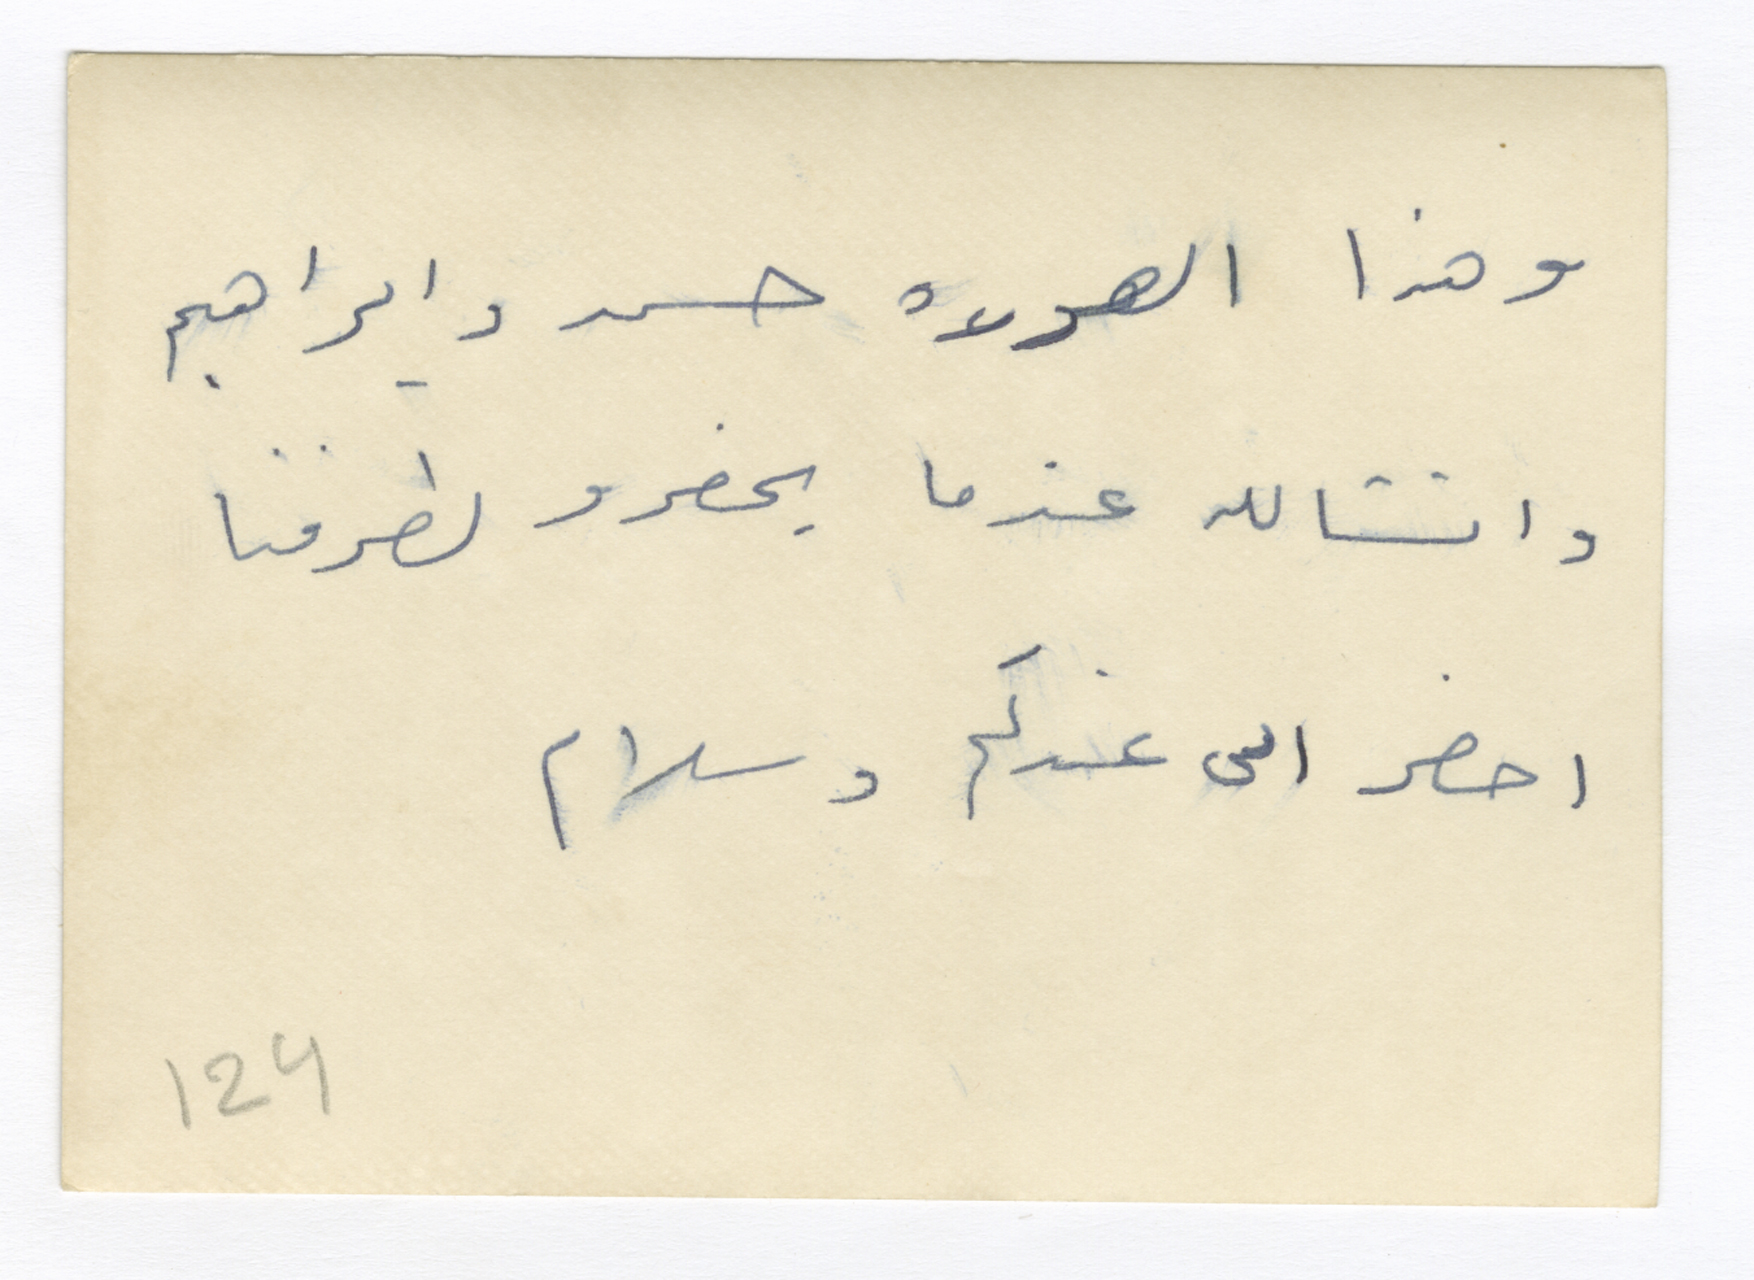 وهذا الهولاه حسد وابراهيم
وانشالله عندما يحضرو لطرفنا
احضر الى عندكم وسلام
124